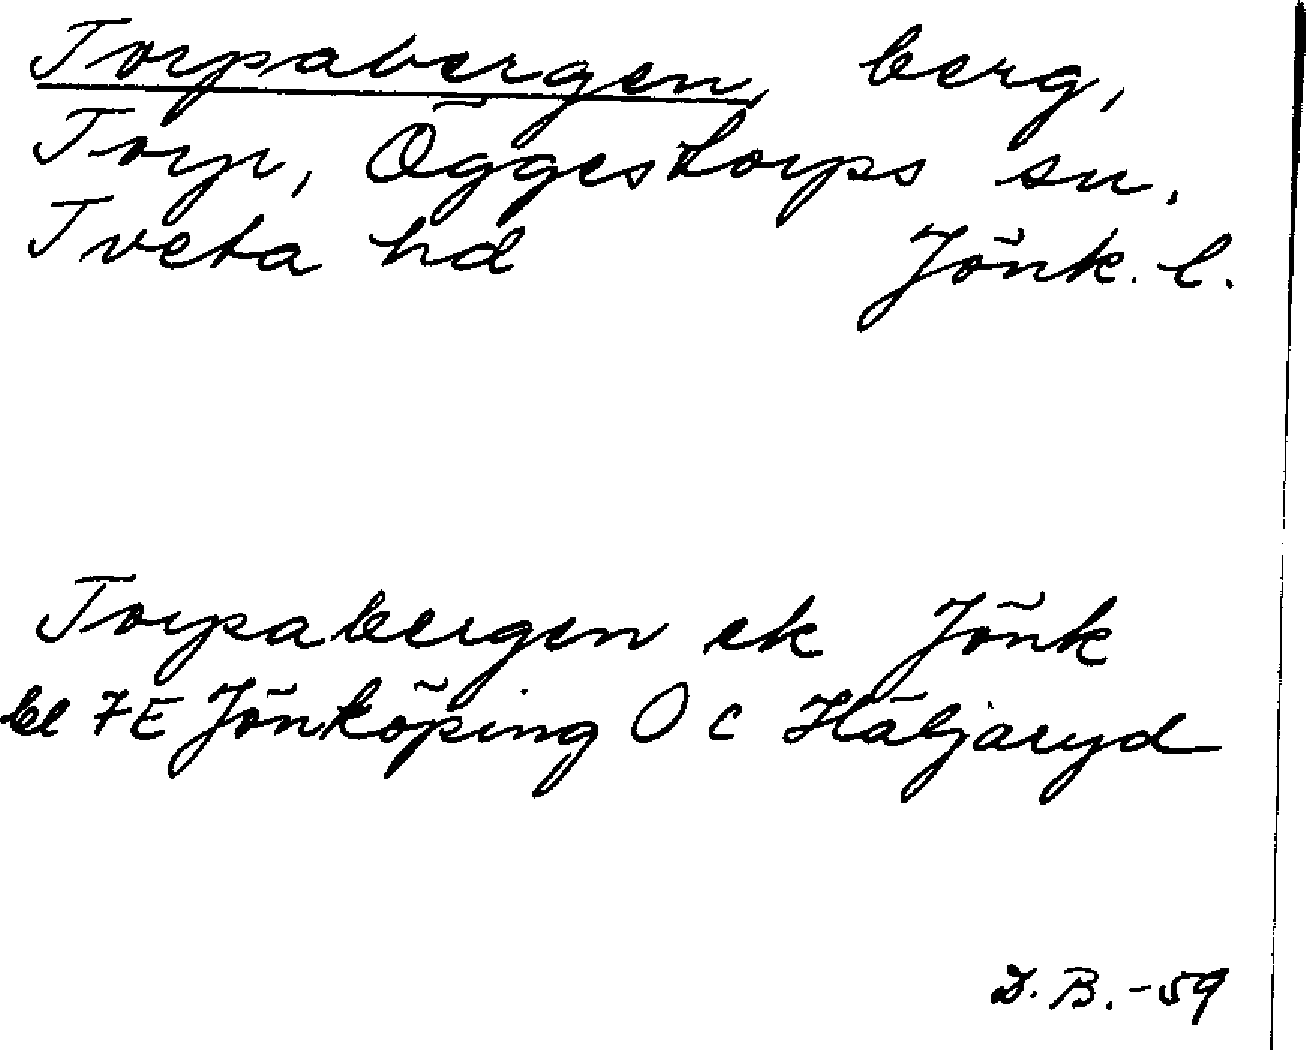 Torpabergen, berg,
Torp, Öggestorps sn.
Tveta hd Jönk. l.
Torpabergen ek Jönk
bl 7E Jönköping O c Häljaryd
D. B. -59